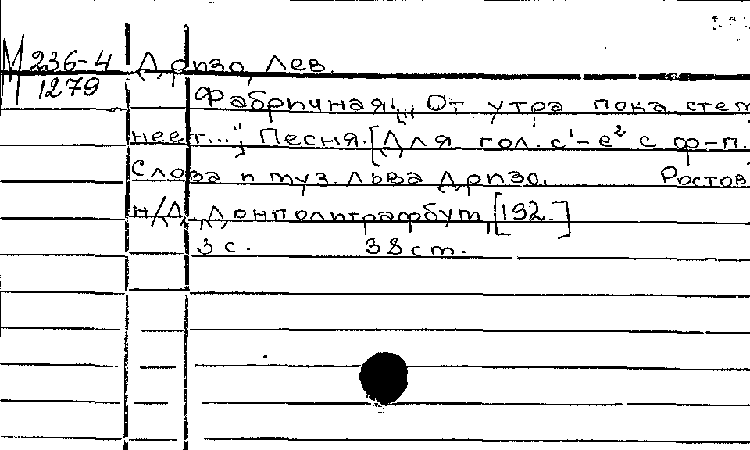 М 236-4 Дризо, Лев.
1279
Фабричная: „От утра пока стем
неет..." Песня. [Для гол. c¹-e² с ф-п.
Слова и муз. Льва Дризо. Ростов
н/Д, Донполиграфбум, [192.]
3 с. 38 ст.